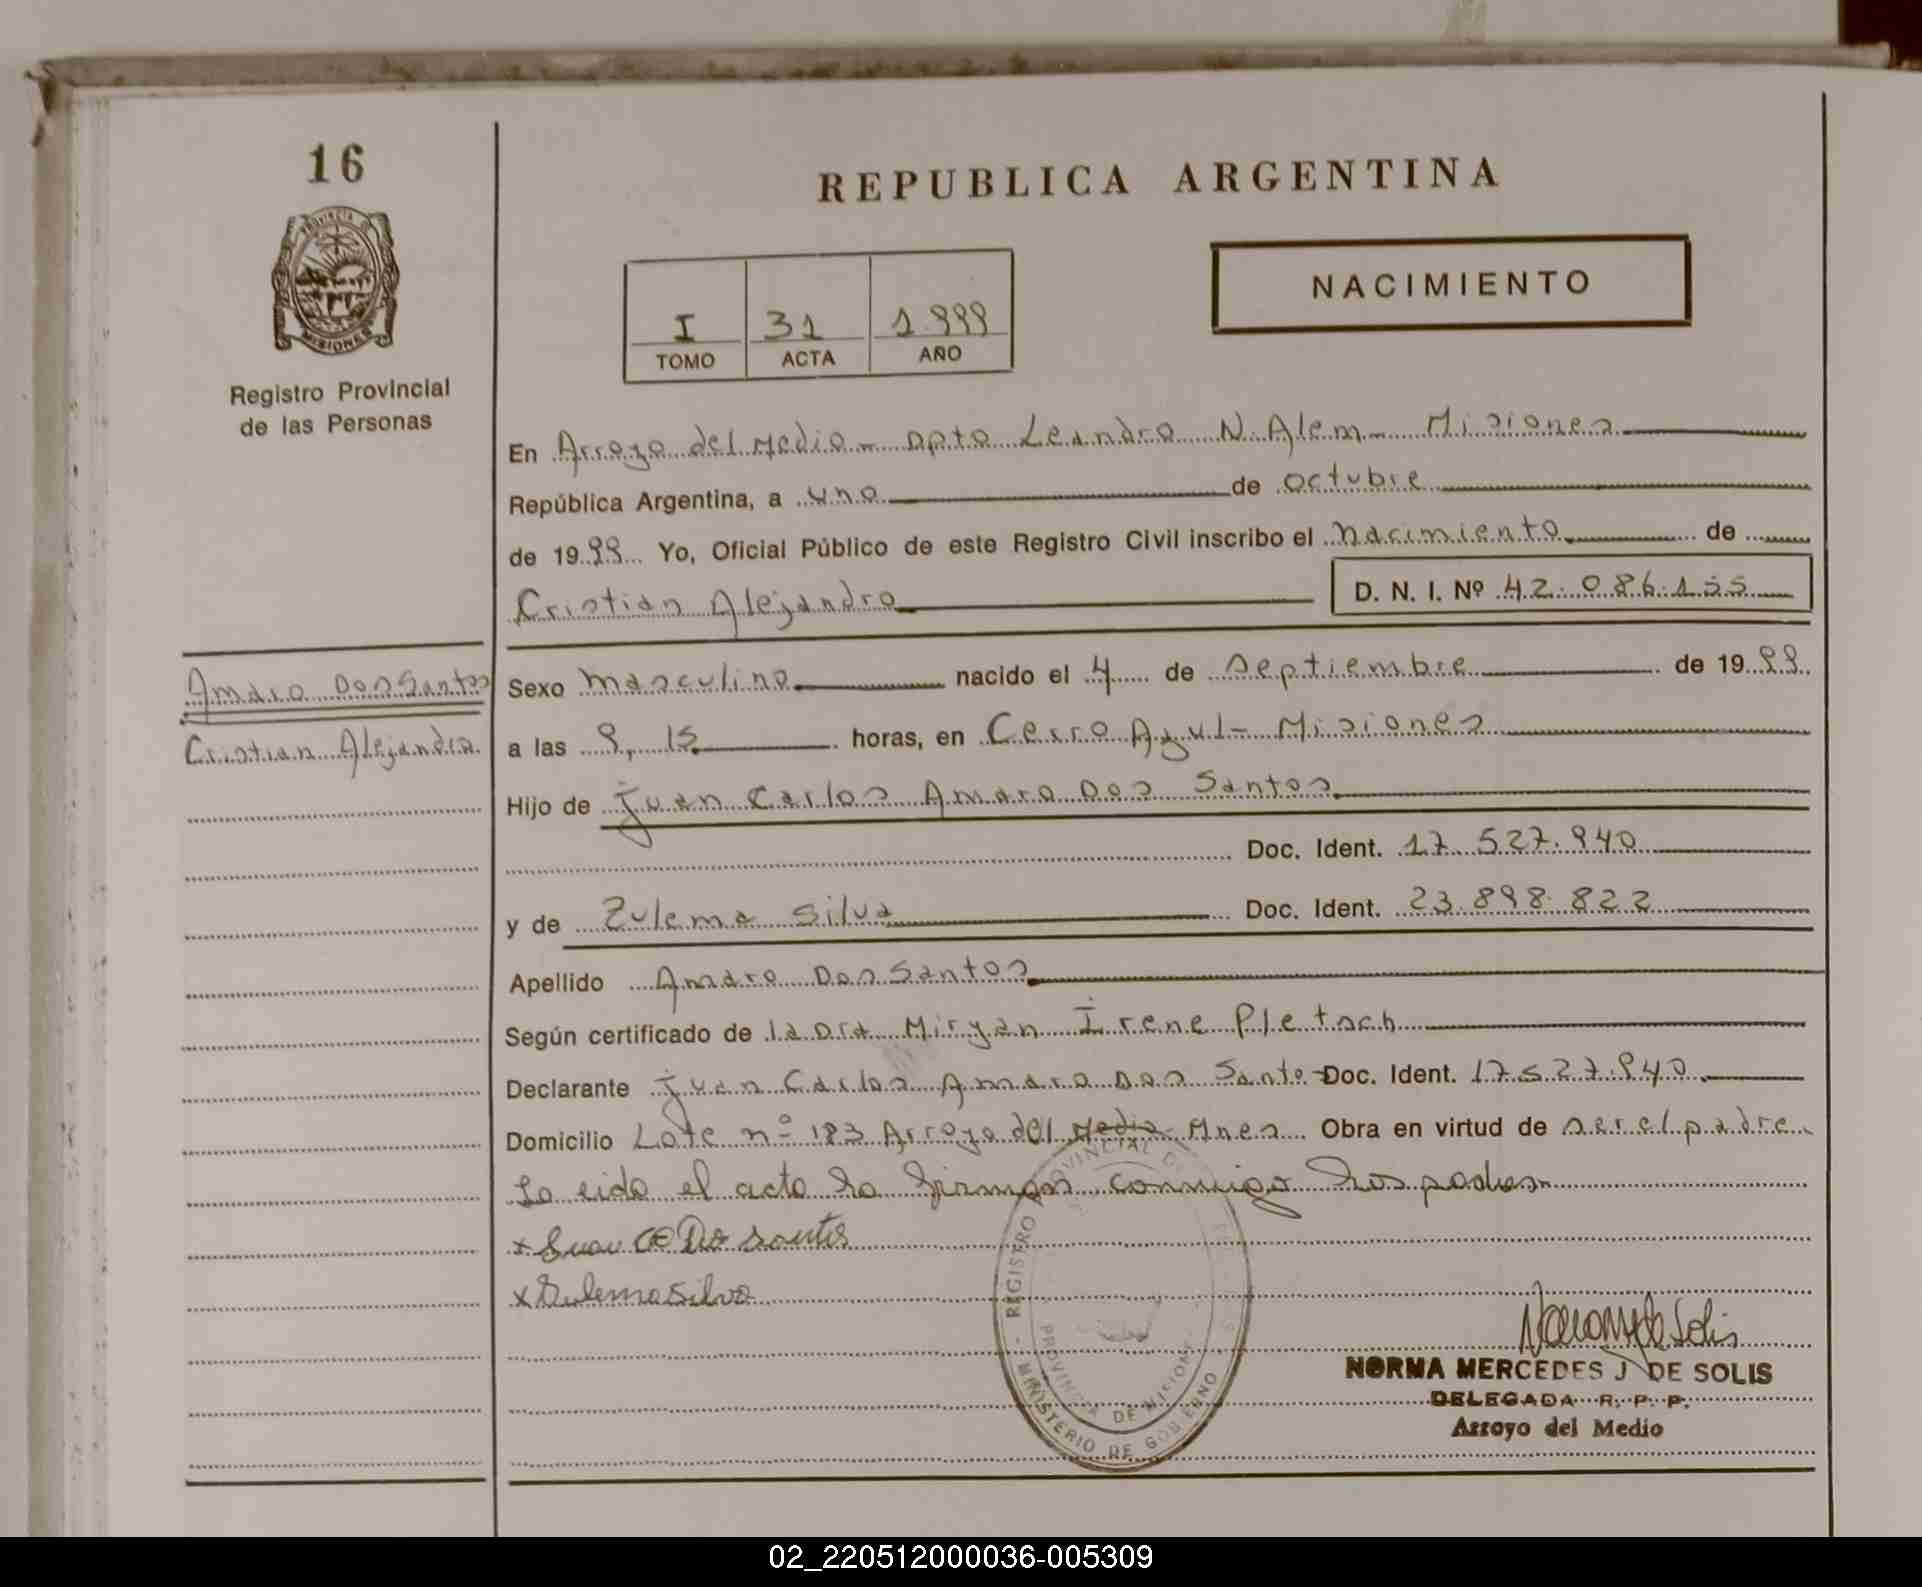 16
REPUBLICA ARGENTINA
NACIMIENTO
I 31 1.999
TOMO ACTA AÑO
PROVINCIA
MISIONES
Registro Provincial
de las Personas
En Arroyo del Medio - Dpto Leandro N. Alem - Misiones
República Argentina, a uno de octubre
de 1999 Yo, Oficial Público de este Registro Civil inscribo el nacimiento de
Cristian Alejandro D. N. I. Nº 42.086.155
Amaro Dos Santos
Cristian Alejandro
Sexo masculino nacido el 4 de septiembre de 1999
a las 9,15 horas, en Cerro Azul - Misiones
Hijo de Juan Carlos Amaro Dos Santos
Doc. Ident. 17.527.940
y de Zulema Silva Doc. Ident. 23.898.822
Apellido Amaro Dos Santos
Según certificado de la Dra Miryan Irene Pletsch
Declarante Juan Carlos Amaro Dos Santo- Doc. Ident. 17527.940
Domicilio Lote nº 183 Arroyo del Medio - Mnes Obra en virtud de ser el padre
Leida el acta la firman conmigo los padres
x Juan C Dos santos
x Zulema Silva
REGISTRO PROVINCIAL DE
PROVINCIA DE MISIONES
MINISTERIO DE GOBIERNO
Norma M J de Solis
NORMA MERCEDES J DE SOLIS
DELEGADA R. P. P.
Arroyo del Medio
02_220512000036-005309